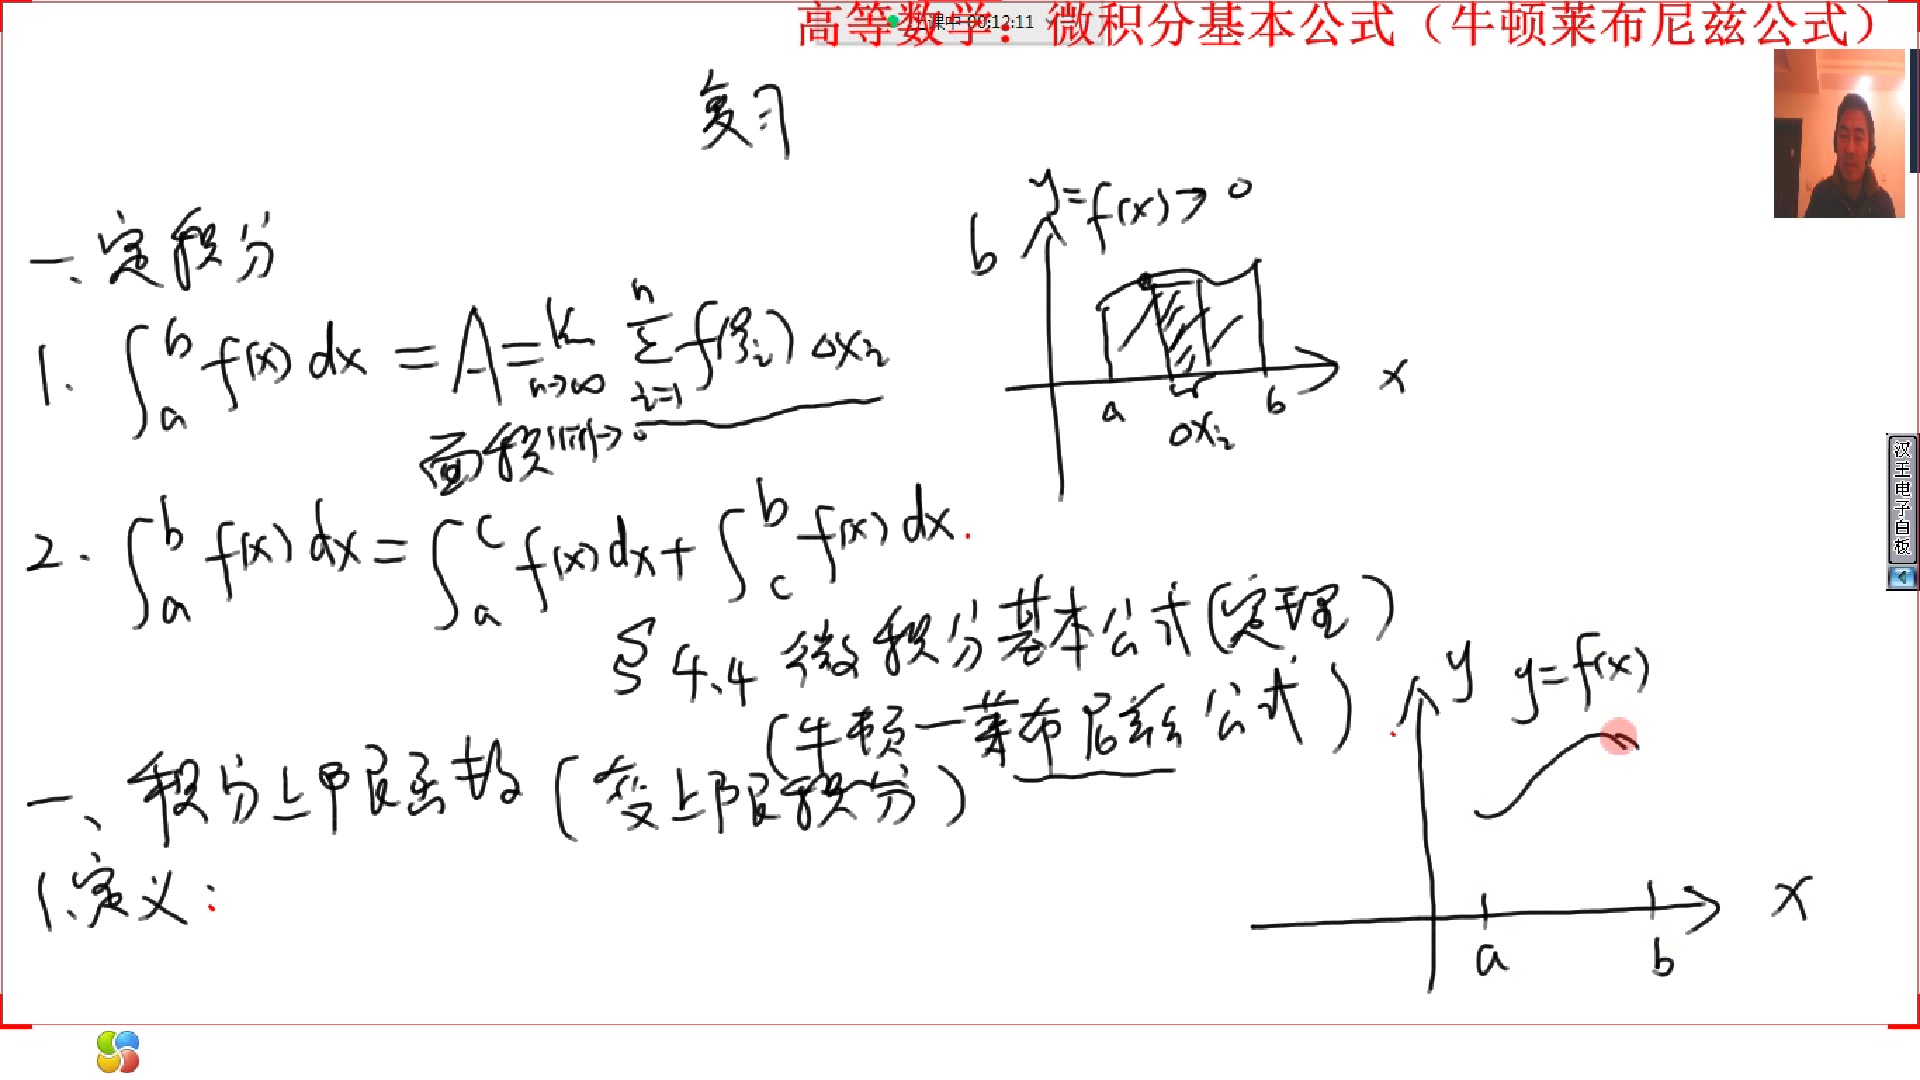 高等数学：微积分基本公式（牛顿莱布尼兹公式）
上课中 00:12:11
复习
一、定积分
y=f(x)>0
b
1. ∫_a^b f(x) dx = A = lim_{n→∞} ∑_{i=1}^n f(ξ_i) Δx_i
面积 ||π||→0
a
Δx_i
b
x
2. ∫_a^b f(x) dx = ∫_a^c f(x) dx + ∫_c^b f(x) dx.
§4.4 微积分基本公式(定理)
(牛顿一莱布尼兹公式)
一、积分上限函数(变上限积分)
1.定义:
y
y=f(x)
x
a
b
汉王电子白板